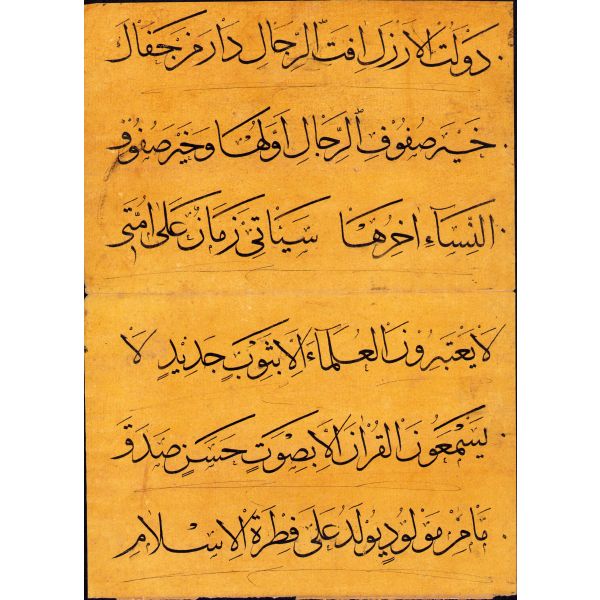 دَوْلَتُ الْارْزِلِ افَتُ الرِّجَالِ دَارَ مَنْ جَفَاكَ
خَيْرُ صُفُوفِ الرِّجَالِ اَوَّلُهَا وَخَيْرُ صُفُوفِ
النِّسَآءِ اخِرُهَا سَيَاْتِى زَمَانٌ عَلَى اُمَّتِى
لَا يَعْتَبِرُونَ الْعُلَمَآءَ اِلَّا بِثَوْبٍ جَدِيدٍ لَا
يَسْمَعُونَ الْقُرْاٰنَ اِلَّا بِصَوْتٍ حَسَنٍ صَدَقَ
مَا مِنْ مَوْلُودٍ يُولَدُ عَلَى فِطْرَةِ الْاِسْلَامِ